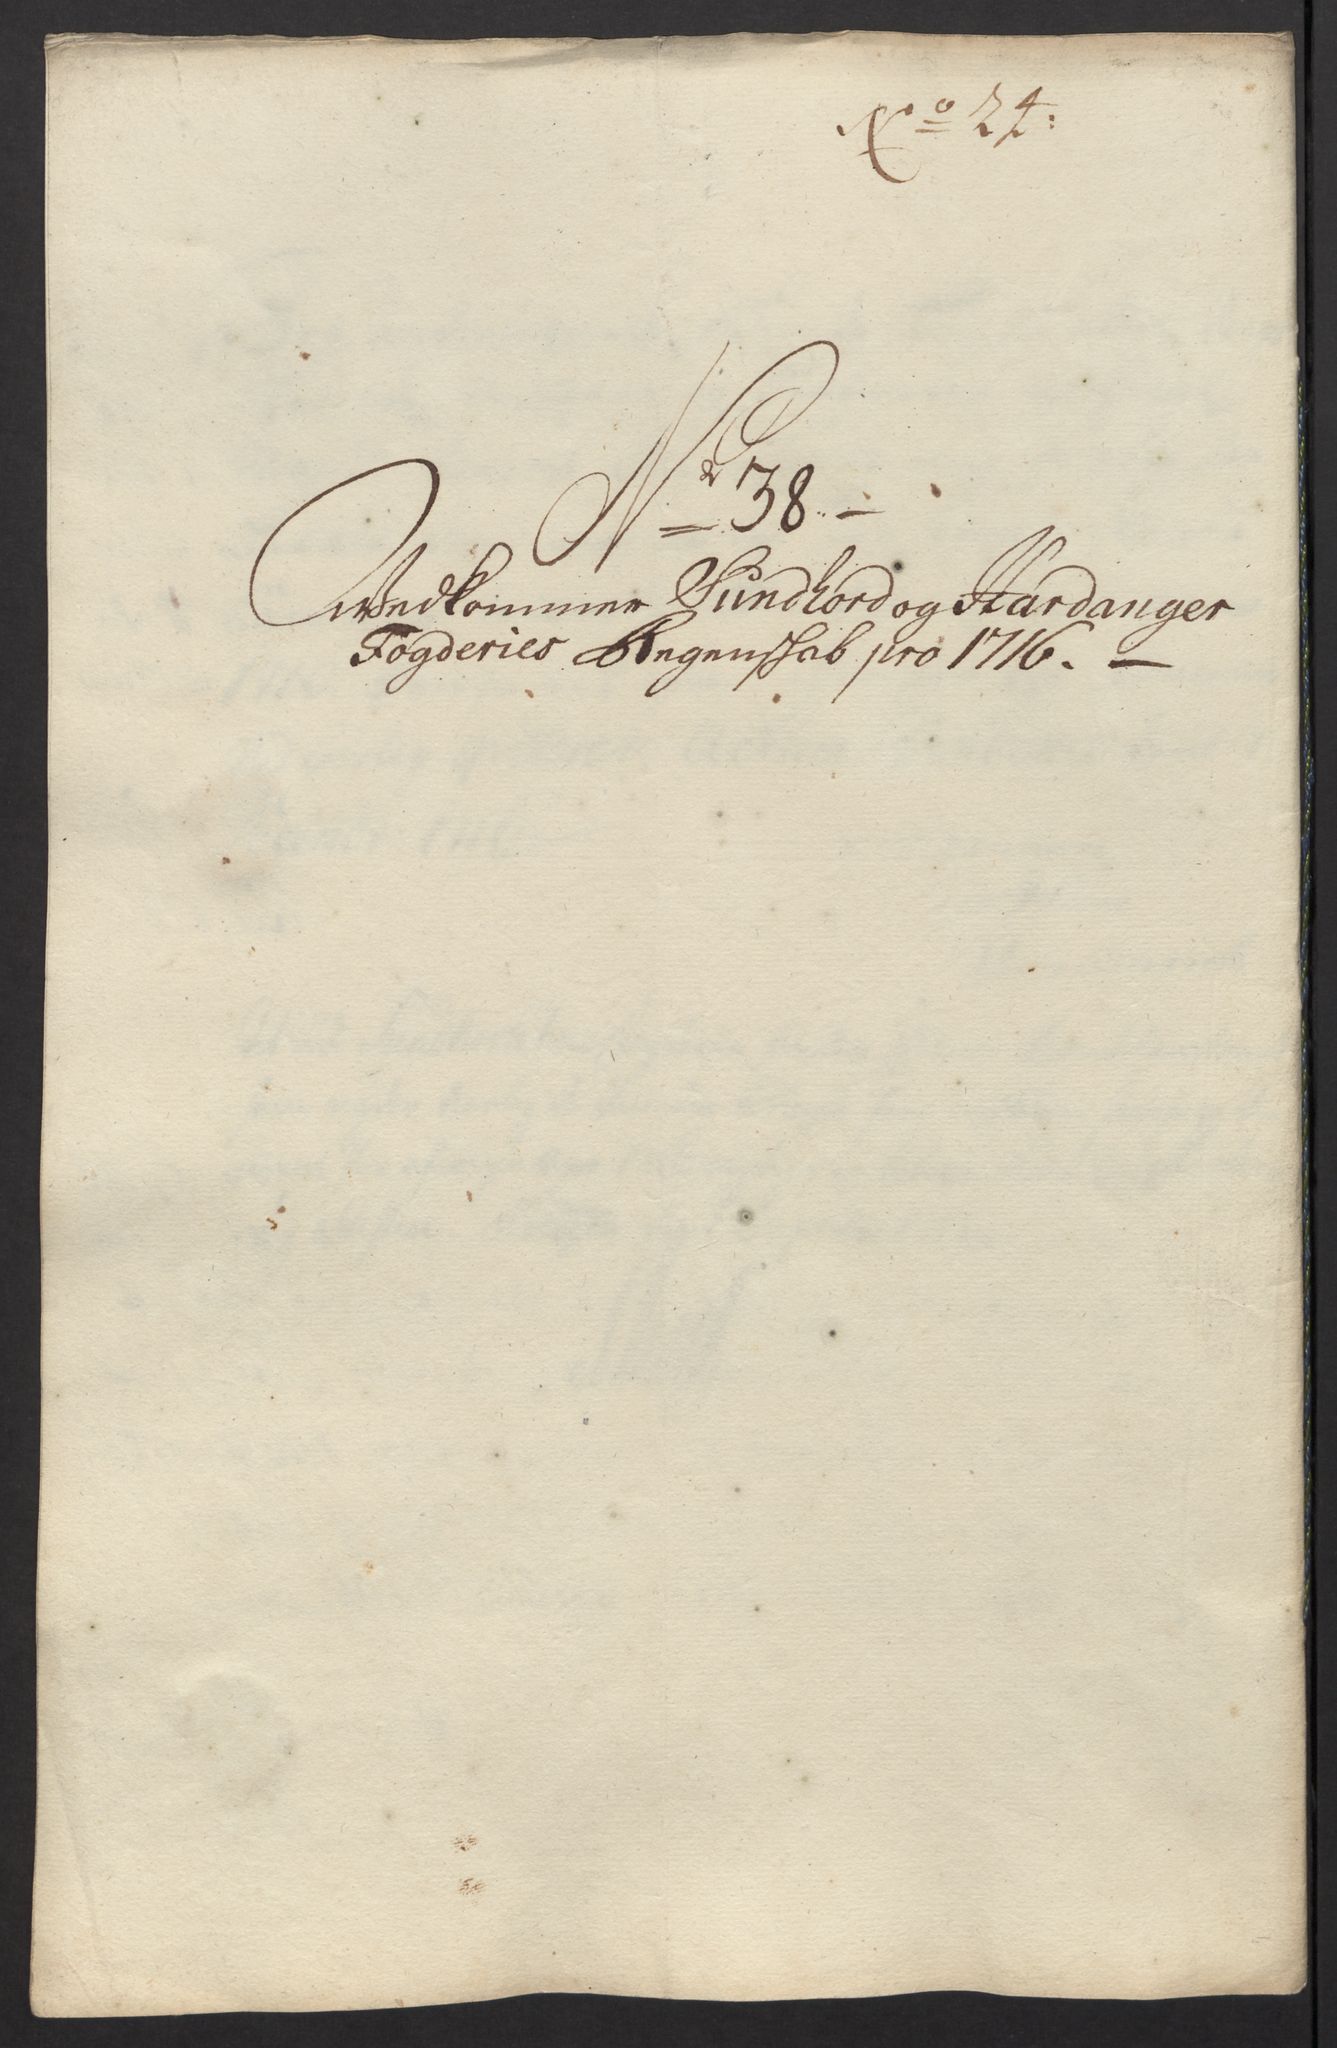 No 24:
Nr 38. —
Vedkommer Sundhord og Hardanger
Fogderies Regenskab pro 1716. —